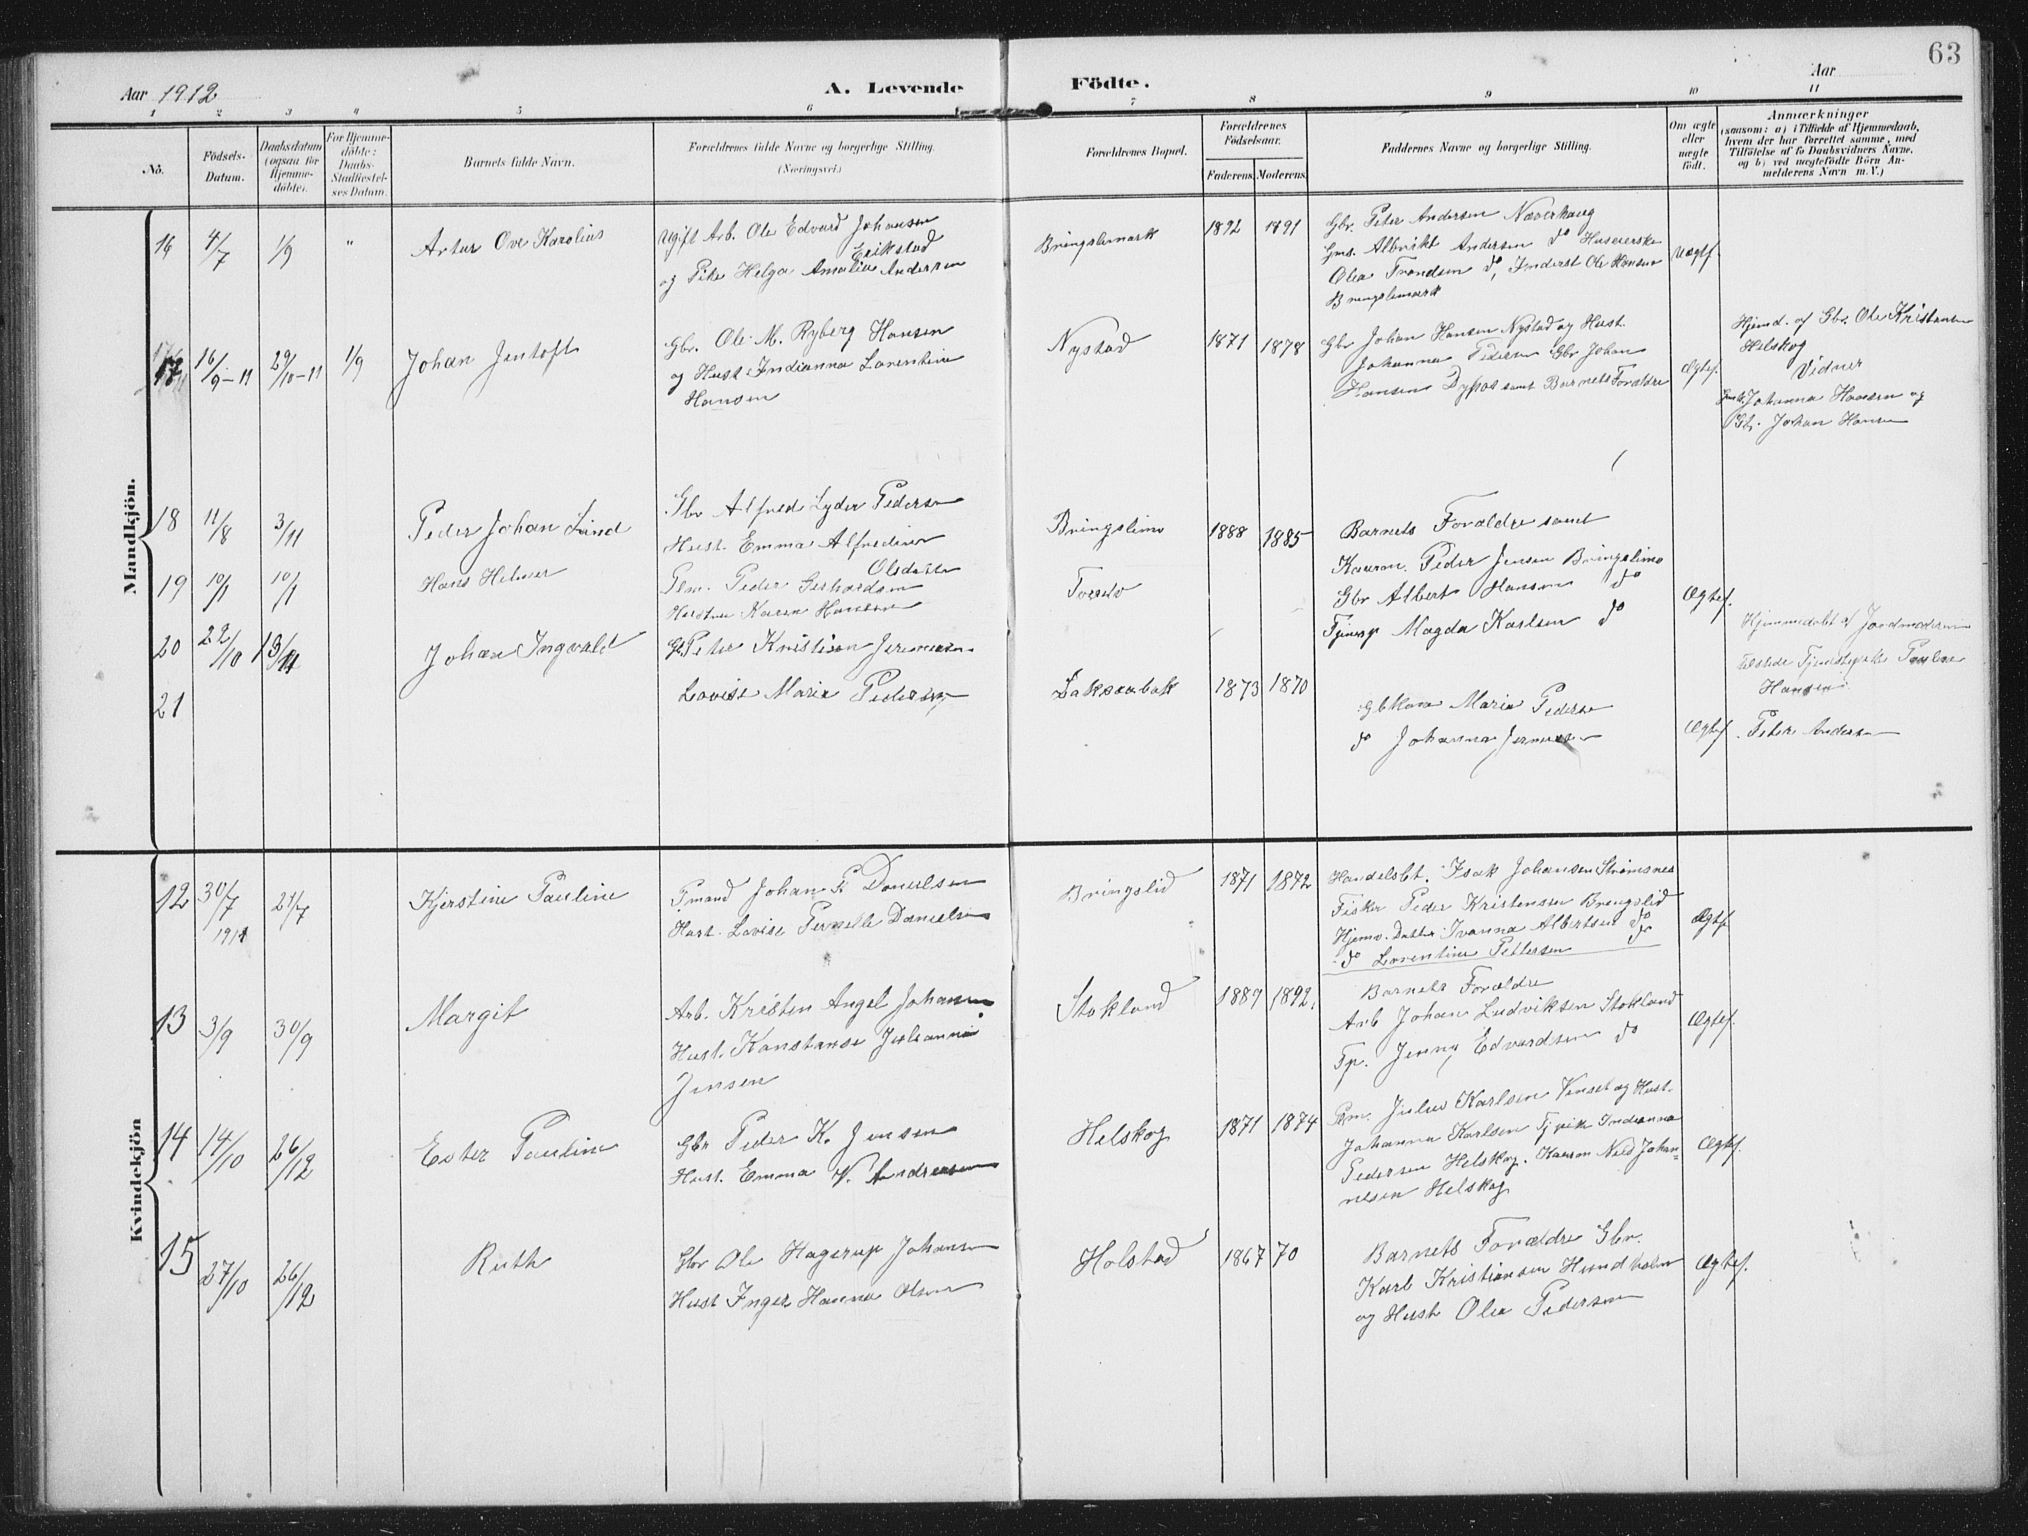 63
Aar 1912
A. Levende
Födte.
Aar
1 2 3 4 5 6 7 8 9 10 11
No.
Födsels-
Datum.
Daabsdatum
(ogsaa for
Hjemme-
döbte).
For Hjemme-
döbte:
Daabs-
Stadfæstel-
ses Datum.
Barnets fulde Navn.
Forældrenes fulde Navne og borgerlige Stilling.
(Næringsvei.)
Forældrenes Bopæl.
Forældrenes
Födselsaar.
Faderens. Moderens.
Faddernes Navne og borgerlige Stilling.
Om ægte
eller
uægte
födt.
Anmærkninger
(saasom: a) i Tilfælde af Hjemmedaab,
hvem der har forrettet samme, med
Tilföielse af to Daabsvidners Navne,
og b) ved uægtefödte Börn An-
melderens Navn m. V.)
Mandkjön.
16 4/7 1/9 " Artur Ove Karolius
Ugift Arb. Ole Edvard Johansen
Erikstad
og Pike Helga Amalia Andersen
Bringslimark 1892 1891
Gbr. Peter Andersen Næverhaug
Gms. Albrikt Andersen do Huseierske
Olea Trondsen do, Inderst Ole Hansen
Bringslimark
Uægtf.
17 16/9-11 29/10-11 1/9 Johan Jentoft
Gbr. Ole M. Ryberg Hansen
og Hust. Indianna Lorentine
Hansen
Nystad 1871 1878
Gbr Johan Hansen Nystad og Hust.
Johanna Pedersen Gbr Johan
Hansen Dypos samt Barnets Forældre
Ægtef.
Hjemd. af Gbr. Ole Kristensen
Helskog
Vidner
Johanna Hansen og
Gbr. Johan Hansen
18 11/8 3/11 Peder Johan Lind
Gbr Alfred Lyder Pedersen
Hust. Emma Alfredine
Olsdatter
Bringslimo 1888 1885
Barnets Forældre samt
Kaarm. Peder Jensen Bringslimo
Gbr Albert Hansen do
Tjenerp Magda Karlsen do
Ægtef.
19 10/1 10/1 Hans Helmer
Plm. Peder Gerhardsen
Hustru Karen Hansen
20 22/10 13/11 Johan Ingvald
Gb Peter Kristian Jeremiasen
Lovise Marie Pedersen
Laksaabak 1873 1870
Gbkona Marie Pedersen
do Johanna Jermiasen
Ægtef.
Hjemmedöbt af Jordmoderen
Hansen
Peter Andersen
21
Kvindekjön
12 30/7 1911 21/7 Kjerstine Pauline
Pmand Johan P Danielsen
Hust. Lovise Pernille Danielsen
Bringslid 1871 1872
Handelsbt. Isak Johansen Strömsnes
Fisker Peder Kristensen Bringslid
Hjemv. Datter Ivanna Albertsen do
do Lorentine Pettersen
Ægtef
13 3/9 30/9 Margit
Arb. Kristen Angel Johansen
Hust. Konstanse Julianna
Jensen
Stokland 1889 1892.
Barnets Forældre
Arb Johan Ludviksen Stokland
Tp. Jenny Edvardsen do
Ægtef.
14 14/10 26/12 Ester Pauline
Gbr Peder K. Jensen
Hust. Emma V. Andreasen
Helskog 1871 1874
Pm. Julius Karlsen Venset og Hust.
Johanna Karlsen Tj pike Indianna
Pedersen Helskog. Kaarm Nils Johan-
nesen Helskog
Ægtef.
15 27/10 26/12 Ruth
Gbr Ole Hagerup Johansen
Hust Inger Hanna Olsen
Holstad 1867 70
Barnets Forældre Gbr.
Karl Kristiansen Hundholm
og Hust Olea Pedersen
Ægtef.